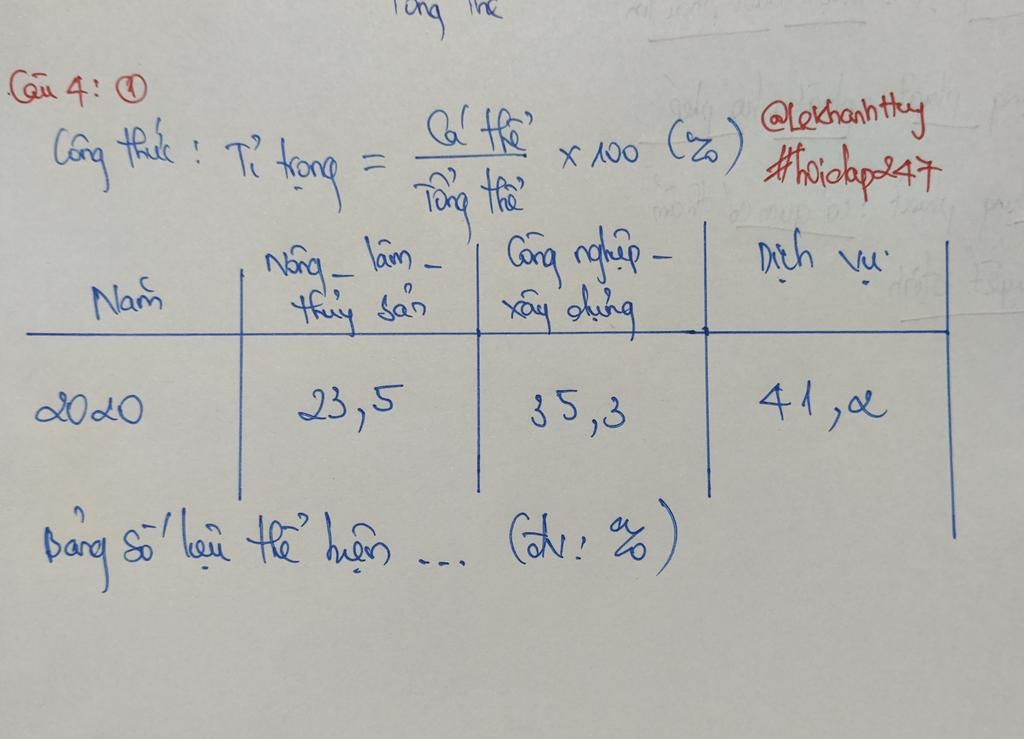 Tổng thể
Câu 4: ①
Công thức: Tỉ trọng = Cá thể / Tổng thể × 100 (%)
@LeKhanhHuy
#hoidap247
Năm | Nông - lâm - thủy sản | Công nghiệp - xây dựng | Dịch vụ
2020 | 23,5 | 35,3 | 41,2
Bảng số liệu thể hiện ... (đv: %)